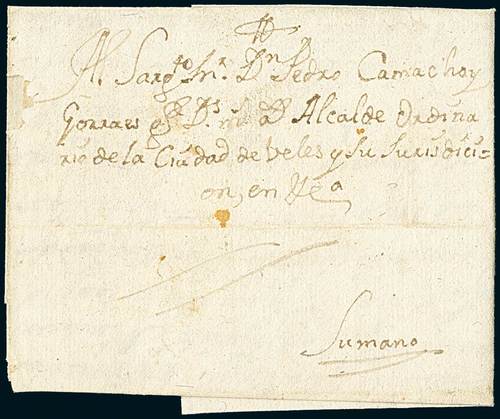 Al Sargto Mr. Dn Pedro Camacho y
Gorraes gde Ds. ms. as. Alcalde Ordina
rio de la Ciudad de Veles y su Jurisdici=
on, en
Su mano